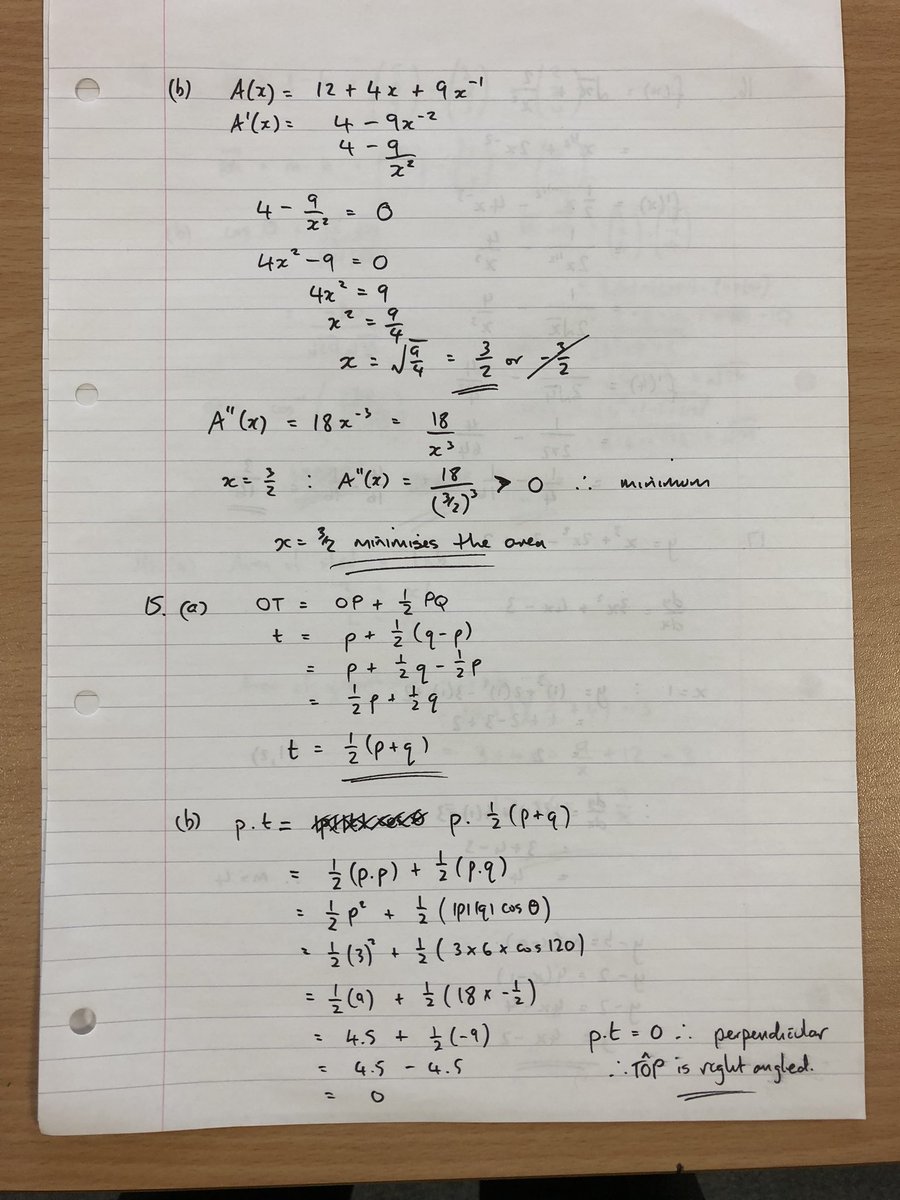 (b) A(x) = 12 + 4x + 9x⁻¹
A'(x) = 4 - 9x⁻²
4 - 9/x²
4 - 9/x² = 0
4x² - 9 = 0
4x² = 9
x² = 9/4
x = √9/4 = 3/2 or -3/2
A''(x) = 18x⁻³ = 18/x³
x = 3/2 : A''(x) = 18/(3/2)³ > 0 ∴ minimum
x = 3/2 minimises the area
15. (a) OT = OP + ½ PQ
t = p + ½ (q - p)
= p + ½ q - ½ p
= ½ p + ½ q
t = ½ (p + q)
(b) p.t = p. ½ (p + q)
= ½ (p.p) + ½ (p.q)
= ½ p² + ½ (|p||q| cos θ)
= ½ (3)² + ½ (3 x 6 x cos 120)
= ½ (9) + ½ (18 x -½)
= 4.5 + ½ (-9)
= 4.5 - 4.5
= 0
p.t = 0 ∴ perpendicular
∴ TÔP is right angled.